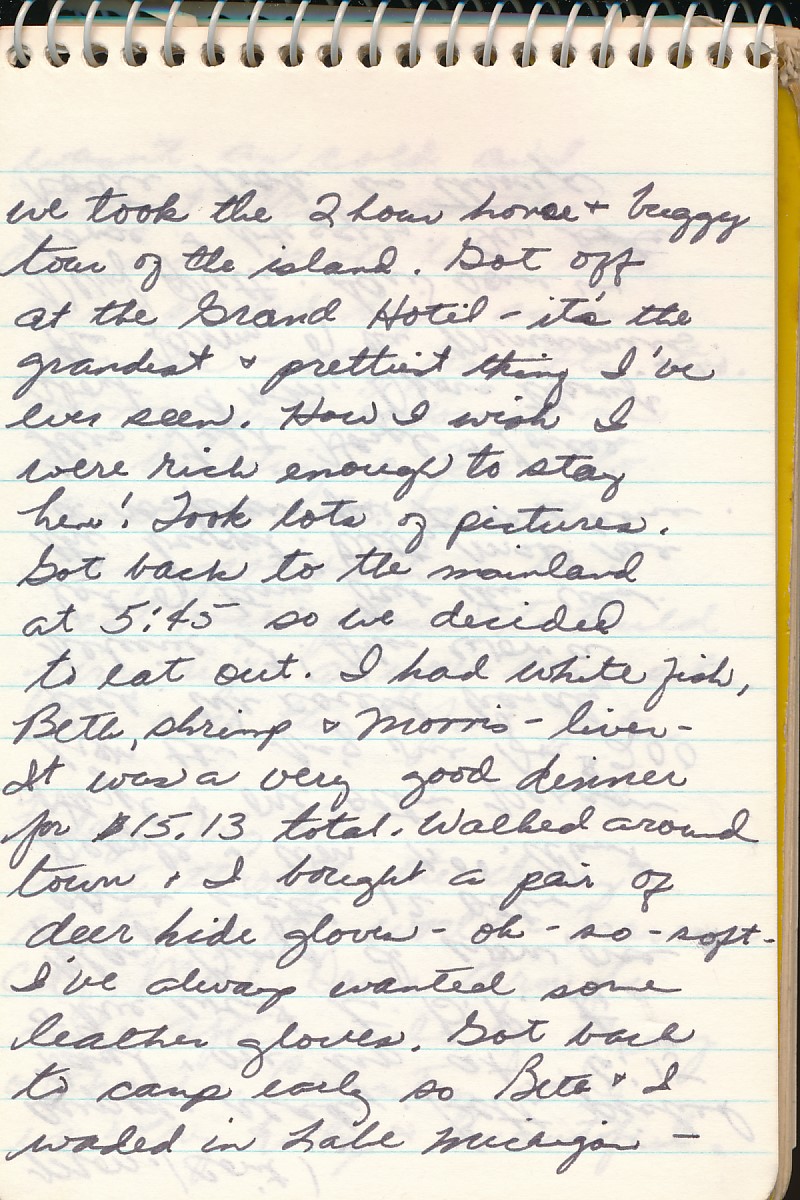 we took the 2 hour horse + buggy
tour of the island. Got off
at the Grand Hotel - it's the
grandest & prettiest thing I've
ever seen. How I wish I
were rich enough to stay
here! Took lots of pictures.
Got back to the mainland
at 5:45 so we decided
to eat out. I had white fish,
Beth, shrimp & Morris - liver -
It was a very good dinner
for $15.13 total. Walked around
town & I bought a pair of
deer hide gloves - oh - so - soft -
I've always wanted some
leather gloves. Got back
to camp early so Beth & I
waded in Lake Michigan -